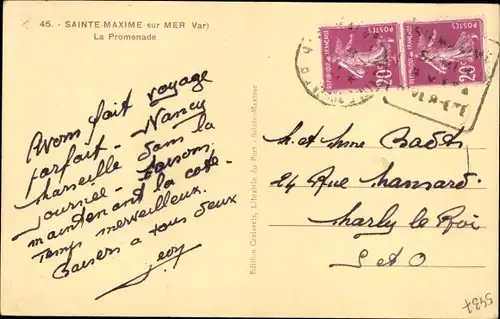 46. - SAINTE-MAXIME-sur MER Var)
La Promenade
Avons fait voyage
parfait - Nancy
Marseille dans la
journée - Faisons
maintenant la côte -
Temps merveilleux.
Baisers à tous deux
Edition Creissels, Librairie du Port - Sainte-Maxime
REPUBLIQUE FRANÇAISE
POSTES
20c
REPUBLIQUE FRANÇAISE
POSTES
20c
M. et Mme
24 Rue Mansard.
Marly le Roi
S et O
5437